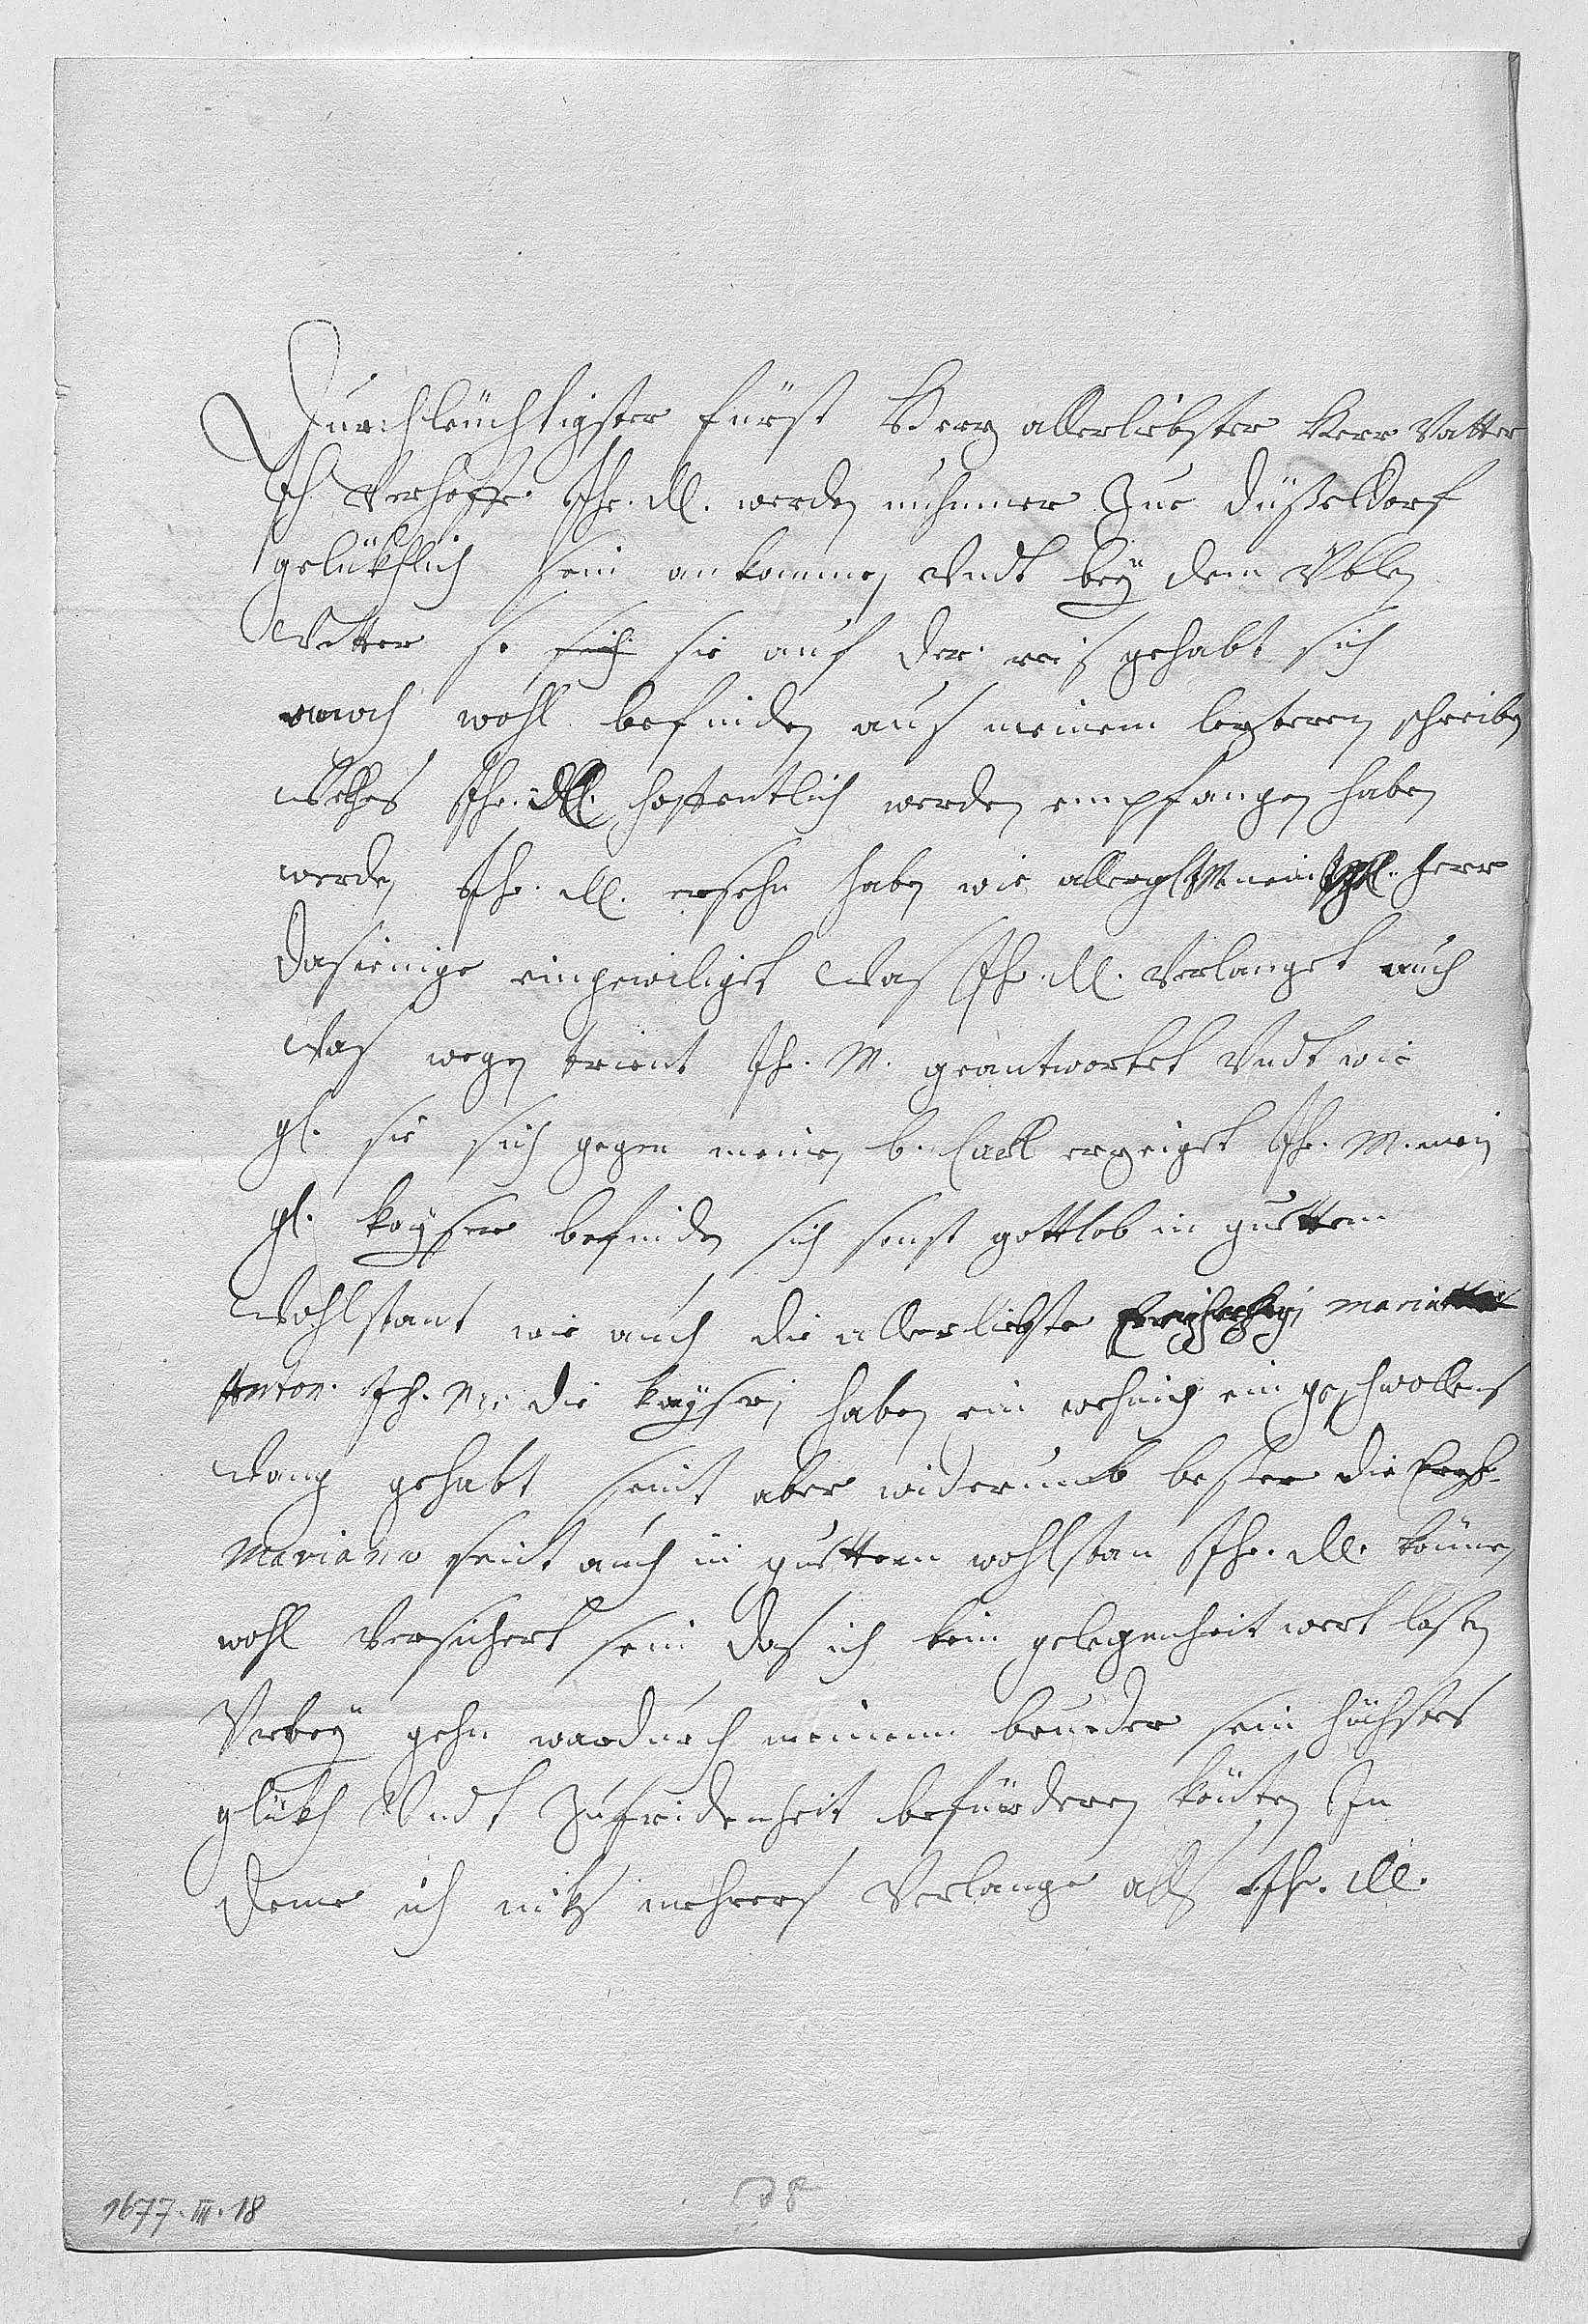 Durchleüchtigster Fürst Herz allerliebster Herr Vatter
Ich verhoffe Ihr. Dl. werden nuhnmer Zue Düßeldorf
gelükhlich sein ankommen Vndt beÿ dem Üblen
Wetter so sie auf der reis gehabt sich
noch wohl befinden aus meinem lezteren schreiben
Welches Ihr. Dl. hoffentlich werden empfangen haben
werden Ihr. Dl. ersehn haben wie mein herr
dasienige eingewiliget Was Ihr. Dl. Verlanget auch
Was wegen trient Ihr. M. geantwortet Vndt wie
gl. sie sich gegen meinen b. Carl erzeiget Ihr. M. mein
gl. kaÿser befinden sich sonst gottlob in guttem
Wohlstant wie auch die allerliebste maria
Anton. Ih. M. die kaÿserin haben ein wehnig ein geschwollens
Wang gehabt seint aber widerumb besser die Erzh.
Mariana seint auch in guttem wohlstan Ihr. Dl. können
wohl Versichert sein das ich kein gelegenheit wert lassen
Verbeÿ gehn wardurch meinem brueder sein höchstes
glükh Vndt Zufridenheit befürderen könten In
deme ich nits mehrers Verlange als Ihr. Dl.
1677. III. 18